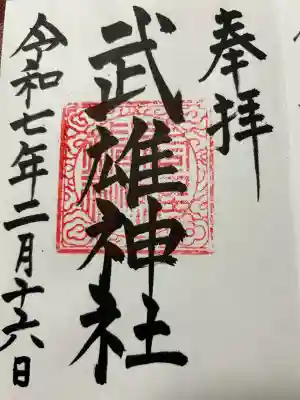 奉拝
武雄神社
令和七年二月十六日